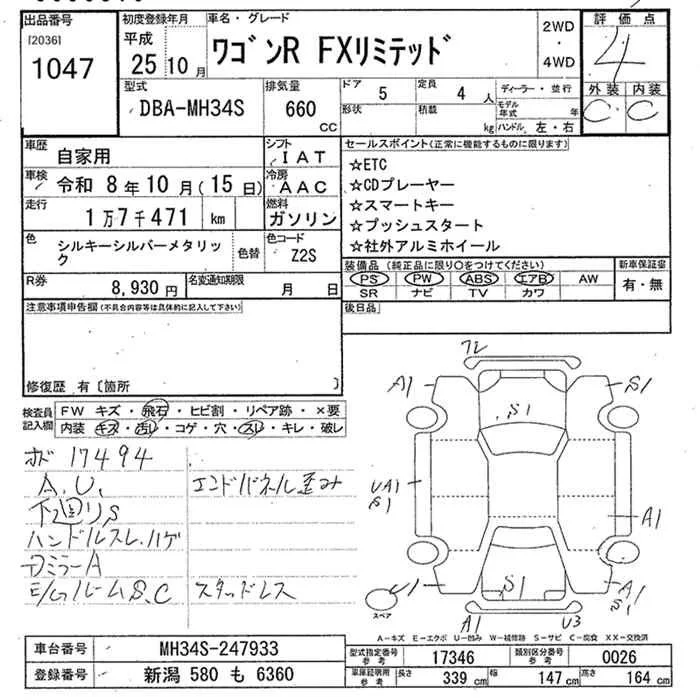 出品番号
[2036]
1047
初度登録年月
平成
25 10 月
車名・グレード
ワゴンR FXリミテッド
2WD
・
4WD
評価点
4
外装 内装
C C
型式
DBA-MH34S
排気量
660
CC
ドア 5
形状
定員 4 人
積載 kg
ディーラー・並行
モデル年式 年
ハンドル 左・右
車歴 自家用
シフト IAT
車検 令和 8年10月(15日)
冷房 AAC
走行 1万7千471 km
燃料 ガソリン
色 シルキーシルバーメタリック
色替
色コード Z2S
R券 8,930円
名変通知期限 月 日
セールスポイント(正常に機能するものに限ります)
☆ETC
☆CDプレーヤー
☆スマートキー
☆プッシュスタート
☆社外アルミホイール
装備品 (純正品に限り○をつけてください)
PS PW ABS エアB AW
SR ナビ TV カワ
新車保証書
有・無
注意事項申告欄(不具合内容等は具体的に記入して下さい)
後日品
修復歴 有〔箇所 〕
検査員記入欄
FW キズ・飛石・ヒビ割・リペア跡・×要
内装 キズ・汚レ・コゲ・穴・スレ・キレ・破レ
ホド 17494
A.U.
エンドパネル歪み
下廻りS
ハンドルスレ.ハゲ
ロミラーA
E/GルームS.C
スタッドレス
フレ
A1
S1
S1
UA1
S1
A1
U1
S1
A1
S1
A1
U3
スペア
A-キズ E-エクボ U-凹み W-補修跡 S-サビ C-腐食 XX-交換済
車台番号 MH34S-247933
登録番号 新潟 580 も 6360
型式指定番号 参考 17346
類別区分番号 参考 0026
車庫証明用 参考 長さ 339 cm 幅 147 cm 高さ 164 cm